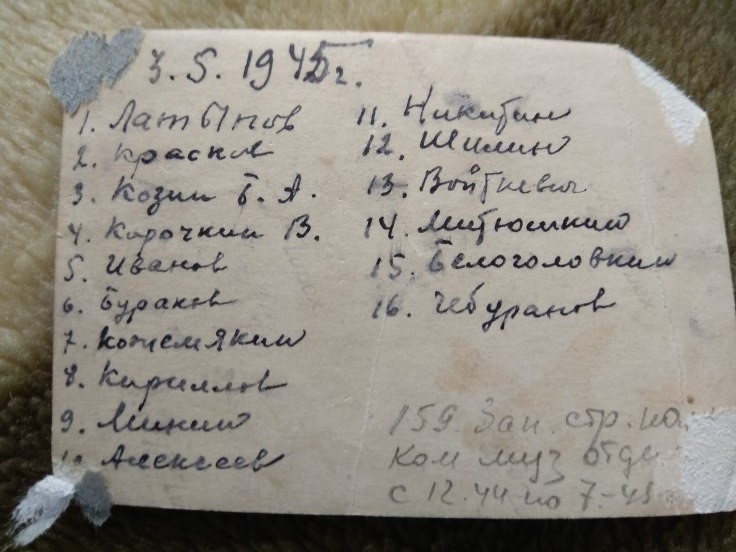 3.5.1945г.
1. Латынов
2. Красков
3. Козин Б. А.
4. Курочкин В.
5. Иванов
6. Бураков
7. Кожемякин
8. Кириллов
9. Минин
10 Алексеев
11. Никитин
12. Шилин
13. Войткевич
14. Митюшкин
15. Белоголовкин
16. Чебуранов
159 Зап. стр.
Ком муз отде
с 12.44 по 7-45